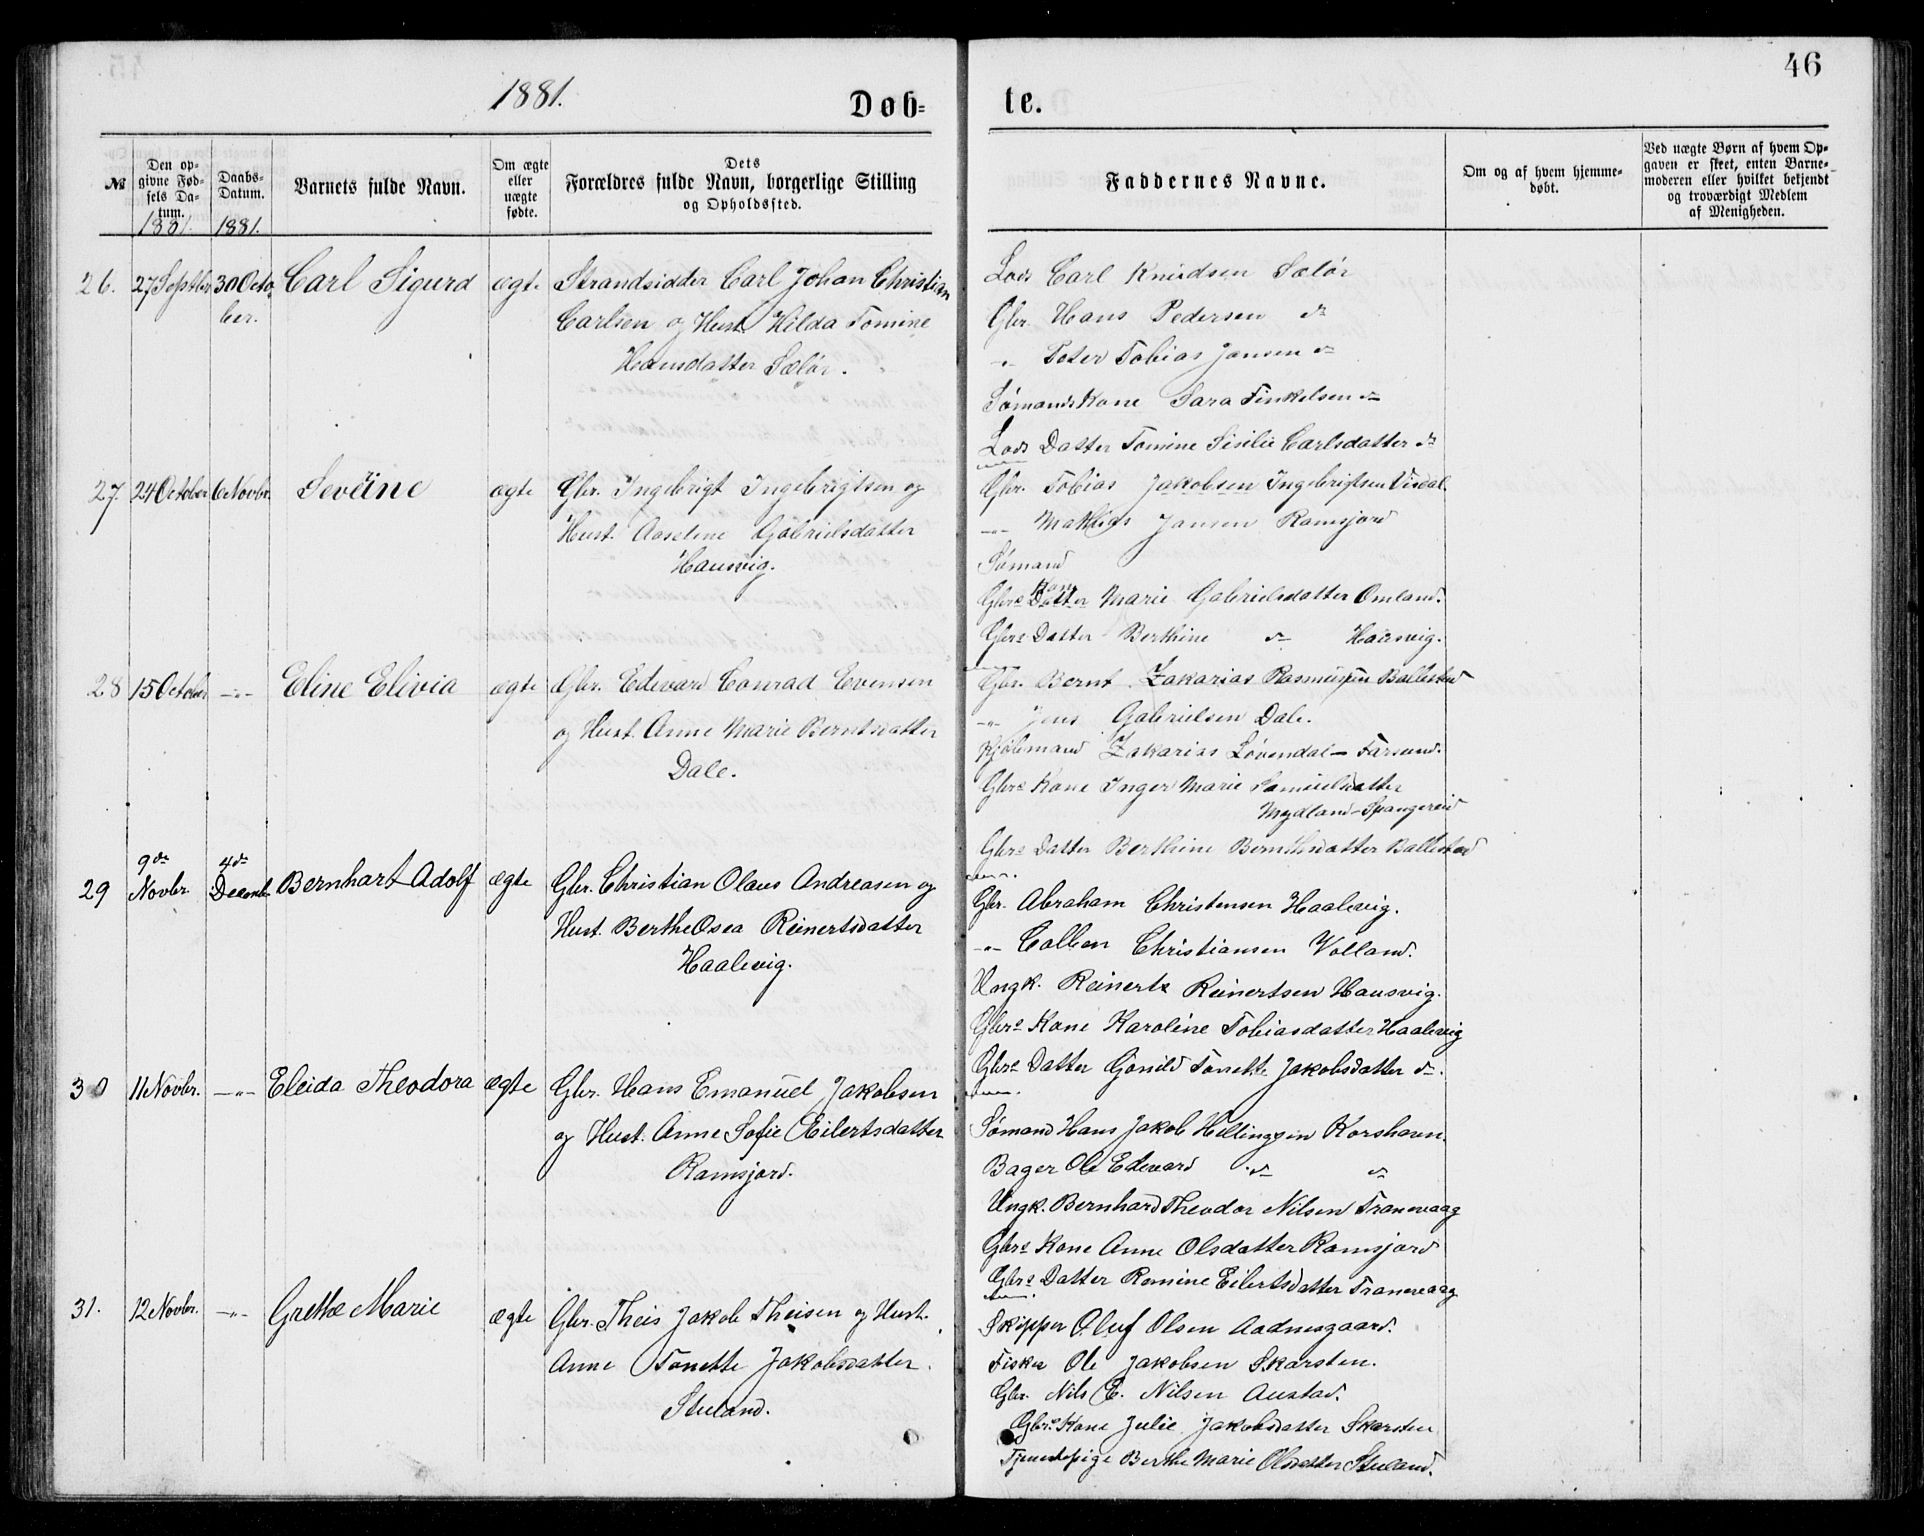 46
1881.
Døb-te.
№
Den opgivne Fødsels Datum.
1881.
Daabs-Datum.
1881.
Barnets fulde Navn.
Om ægte eller uægte fødte.
Dets Forældres fulde Navn, borgerlige Stilling og Opholdssted.
Faddernes Navne.
Om og af hvem hjemmedøbt.
Ved uægte Børn af hvem Opgaven er skeet, enten Barnemoderen eller hvilket bekjendt og troværdigt Medlem af Menigheden.
26. 27 Septbr 30 October. Carl Sigurd ægte
Strandsidder Carl Johan Christian
Carlsen og Hust. Hilda Tomine
Hansdatter Sælør.
Lods Carl Knudsen Sælør
Gbr. Hans Pedersen do
-"- Peter Tobias Jansen do
Sømands Kone Sara Finkelsen do
Lods Datter Tomine Sisilie Carlsdatter do
27 24 October 6 Novbr. Sevrine ægte
Gbr. Ingebrigt Ingebrigtsen og
Hust. Aaselene Gabrielsdatter
Hausvig.
Gbr. Tobias Jakobsen Ingebrigtsen Vivdal.
-"- Mathias Jansen Ramsjord
Sømand
Gbrs Kone Datter Marie Gabrielsdatter Omland.
Gbrs Datter Berthine do Hausvig.
28 15 October -"- Eline Elivia ægte
Gbr. Edevard Conrad Evensen
og Hust. Anne Marie Berntsdatter
Dale.
Gbr. Bernt Zakarias Rasmussen Ballestad
-"- Jens Gabrielsen Dale.
Kjøbmand Zakarias Løvendal - Farsund.
Gbrs Kone Inger Marie Samuelsdatter
Mydland - Spangereid
Gbrs Datter Berthine Berntsdatter Ballestad
29 9de Novbr. 4de Decembr. Bernhart Adolf ægte
Gbr. Christian Olaus Andreasen og
Hust. Berthe Osea Reinertsdatter
Haalevig.
Gbr. Abraham Christensen Haalevig.
-"- Colben Christiansen Volland.
Ungk. Reinert Reinertsen Hausvig.
Gbrs Kone Karoline Tobiasdatter Haalevig
Gbrs Datter Gonild Tonette Jakobsdatter do.
30 11 Novbr. -"- Eleida Theodora ægte
Gbr. Hans Emanuel Jakobsen
og Hust. Anne Sofie Eilertsdatter
Ramsjord.
Sømand Hans Jakob Hellingsen Korshavn.
Bager Ole Edevard do do
Ungk. Bernhard Theodor Nilsen Tranevaag
Gbrs Kone Anne Olsdatter Ramsjord
Gbrs Datter Romine Eilertsdatter Tranevaag
31. 12 Novbr. -"- Grethe Marie ægte
Gbr. Theis Jakob Theisen og Hust.
Anne Tonette Jakobsdatter.
Stuland.
Skipper Oluf Olsen Aadnesgaard.
Fisker Ole Jakobsen Skarsten.
Gbr. Nils E. Nilsen Austad.
Gbrs Kone Julie Jakobsdatter Skarsten
Tjenestepige Berthe Marie Olsdatter Stuland.